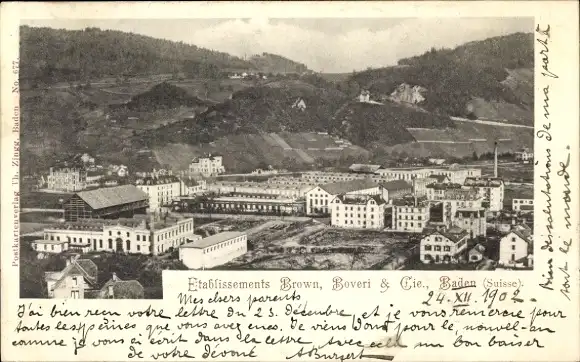 Postkartenverlag Th. Zingg, Baden No. 677.
Etablissements Brown, Boveri & Cie., Baden (Suisse).
24. XII. 1902.
Mes chers parents,
J'ai bien reçu votre lettre du 23 Décembre, et je vous remercie pour
toutes les que vous avez Je viens donc pour le nouvel-an
comme je vous ai écrit dans la lettre. Avec un bon baiser
de votre dévoué A. Burgert
Bien des salutations de ma part à
tout le monde.